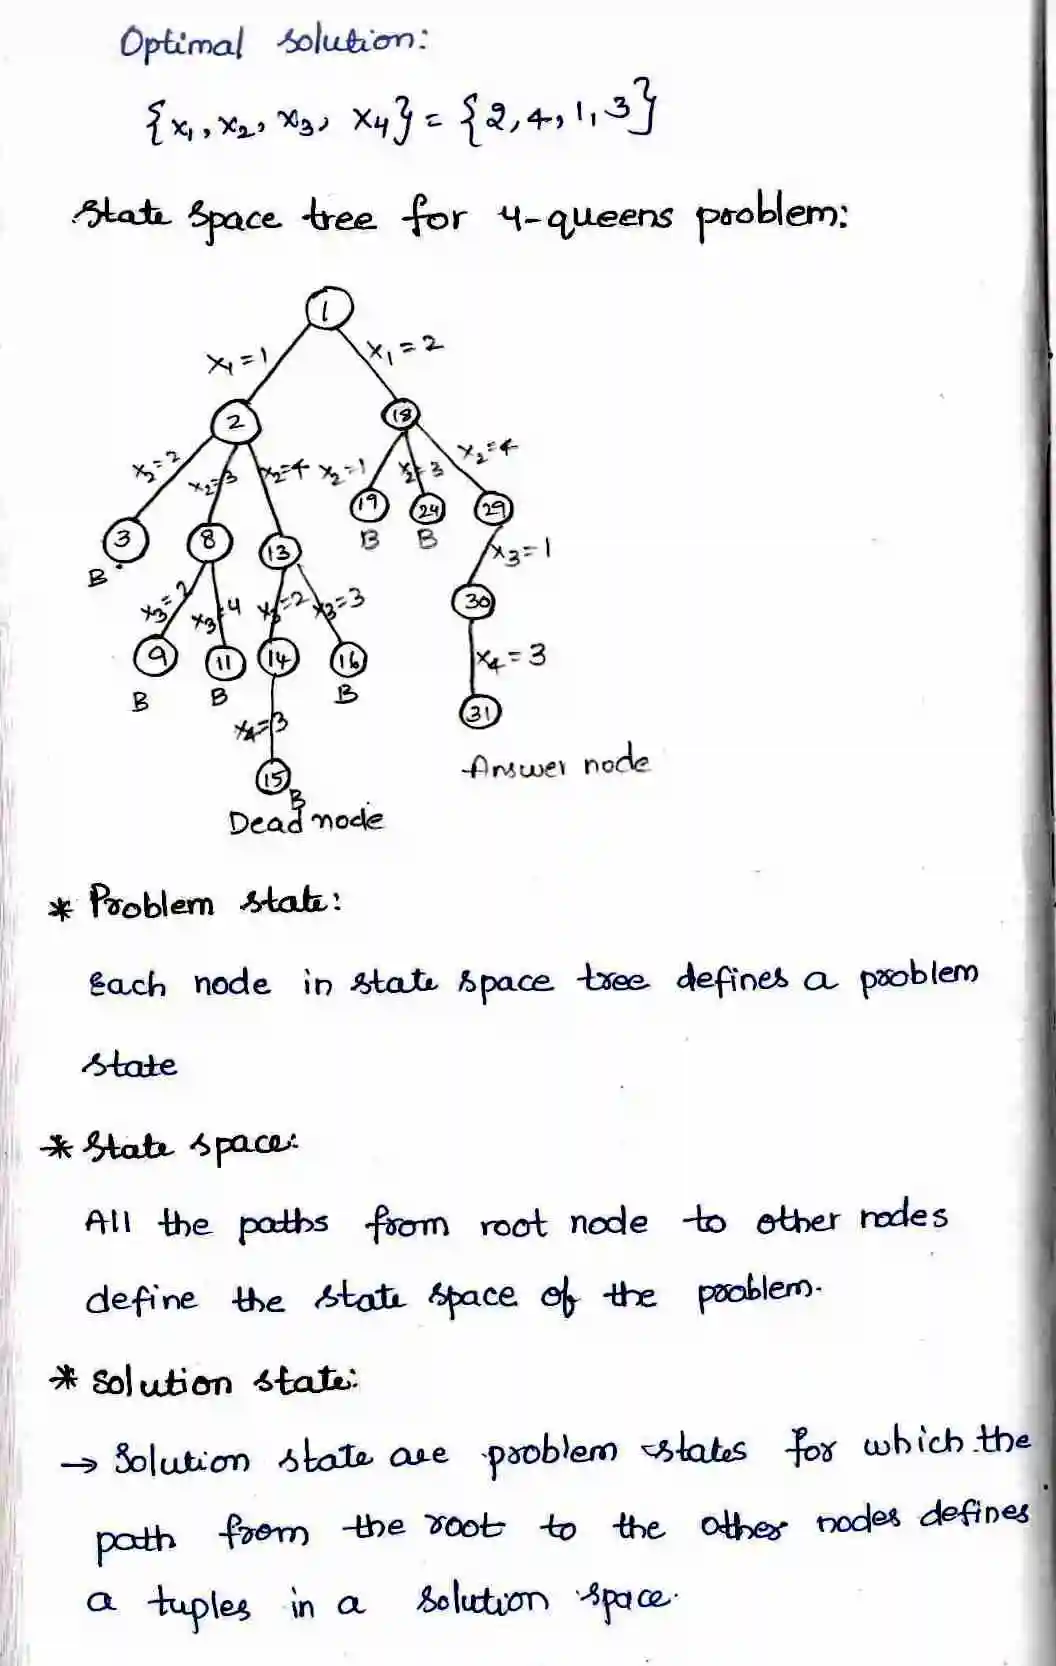 Optimal solution:
{x₁, x₂, x₃, x₄} = {2, 4, 1, 3}
State space tree for 4-queens problem:
1
x₁=1 x₁=2
2 18
x₂=2 x₂=3 x₂=4 x₂=1 x₂=3 x₂=4
19 24 29
B B
3 8 13
B
x₃=1
x₃=2 x₃=4 x₃=2 x₃=3
30
9 11 14 16
B B B
x₄=3
x₄=3
31
15
B
Answer node
Dead node
* Problem state:
Each node in state space tree defines a problem
state
* State space:
All the paths from root node to other nodes
define the state space of the problem.
* Solution state:
→ Solution state are problem states for which the
path from the root to the other nodes defines
a tuples in a solution space.